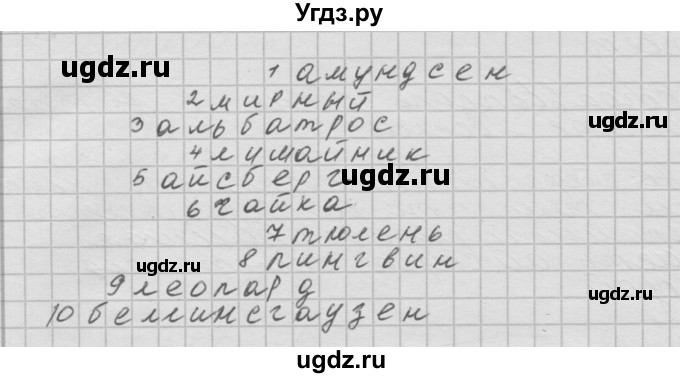 Угдз.ру
ugdz.ru
1 амундсен
2 мирный
3 альбатрос
ugdz.ru
4 лишайник
ugdz.ru
5 айсберг
6 чайка
7 тюлень
8 пингвин
ugdz.ru
9 леопард
ugdz.ru
10 беллинсгаузен
ugdz.ru